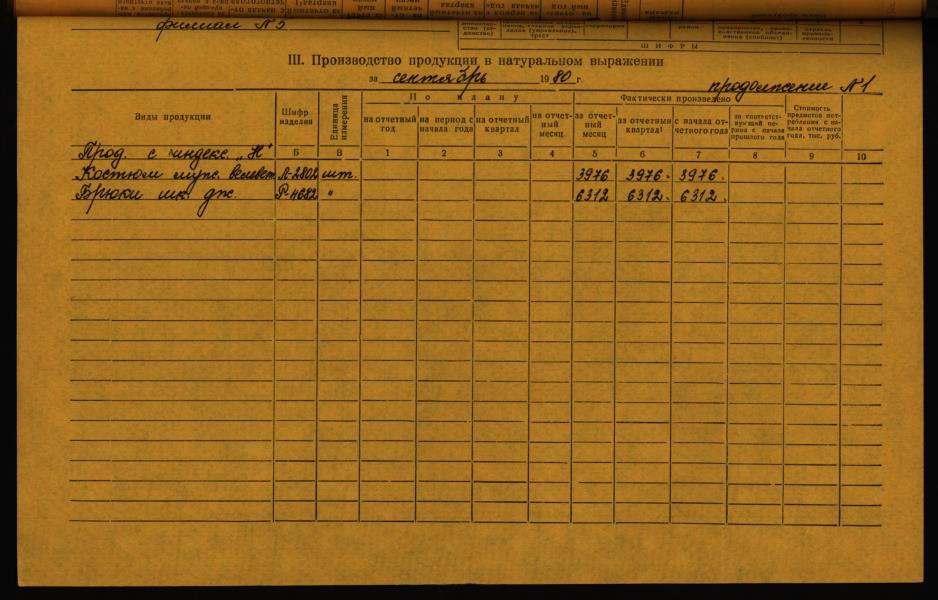 филиал №5
ШИФРЫ
III. Производство продукции в натуральном выражении
за сентябрь 1980 г.
продолжение №1
Виды продукции
Шифр изделия
Единица измерения
По плану
на отчетный год
на период с начала года
на отчетный квартал
на отчетный месяц
Фактически произведено
за отчетный месяц
за отчетный квартал
с начала отчетного года
за соответствующий период с начала прошлого года
Стоимость предметов потребления с начала отчетного года, тыс. руб.
Прод. с индекс. „Н" Б В 1 2 3 4 5 6 7 8 9 10
Костюм муж. вельвет. шт. 3976 3976. 3976.
Брюки дж. Р-4682 " 6312 6312. 6312.